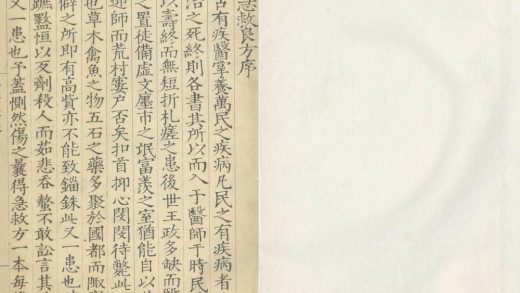 急救良方序
古有疾醫掌養萬民之疾病凡民之有疾病者
治之死終則各書其所以而入于醫師于時民
以壽終而無短折札瘥之患後世王政多缺而醫
之置徒備虛文廛市之氓富羨之室猶能自以
迎師而荒村窶户否矣扣首抑心閔閔待斃此
也草木禽魚之物五石之藥多聚於國都而陬
僻之所即有高貲亦不能致錙銖此又一患也
盭恒以刄劑殺人而茹悲吞螫不敢訟言其
又一患也予蓋惻然傷之曩得急救方一本每